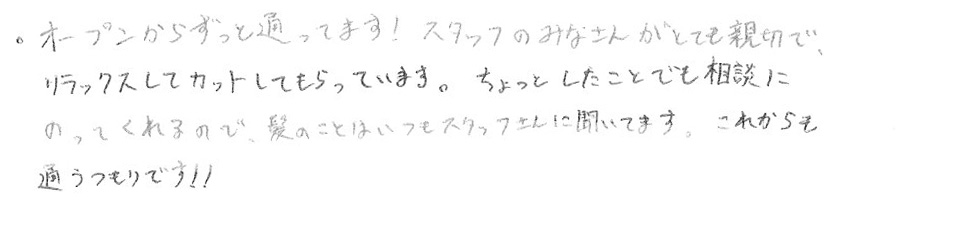 。オープンからずっと通ってます！スタッフのみなさんがとても親切で、
リラックスしてカットしてもらっています。ちょっとしたことでも相談に
のってくれるので、髪のことはいつもスタッフさんに聞いてます。これからも
通うつもりです!!